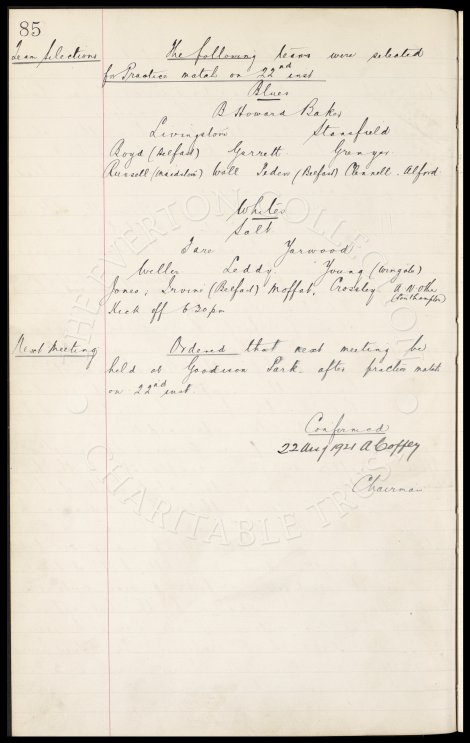 85
Team Selections
The following teams were selected
for Practice match on 22nd inst
Blues
B Howard Baker
Livingstone Stansfield
Boyd (Belfast) Garrett Grenyer
Russell (Maidstone) Wall (Belfast) Clennell. Alford.
Whites
Salt
Fare Yarwood
Weller Leddy. Young (Wingate)
Jones, Irvine (Belfast) Moffat, Crossley A. N. Other
(Southampton)
Kick off 6 30 pm
Next Meeting
Ordered that next meeting be
held at Goodison Park after practice match
on 22nd inst.
Confirmed
22 Aug 1921 A Coffey
Chairman
THE EVERTON COLLECTION
CHARITABLE TRUST